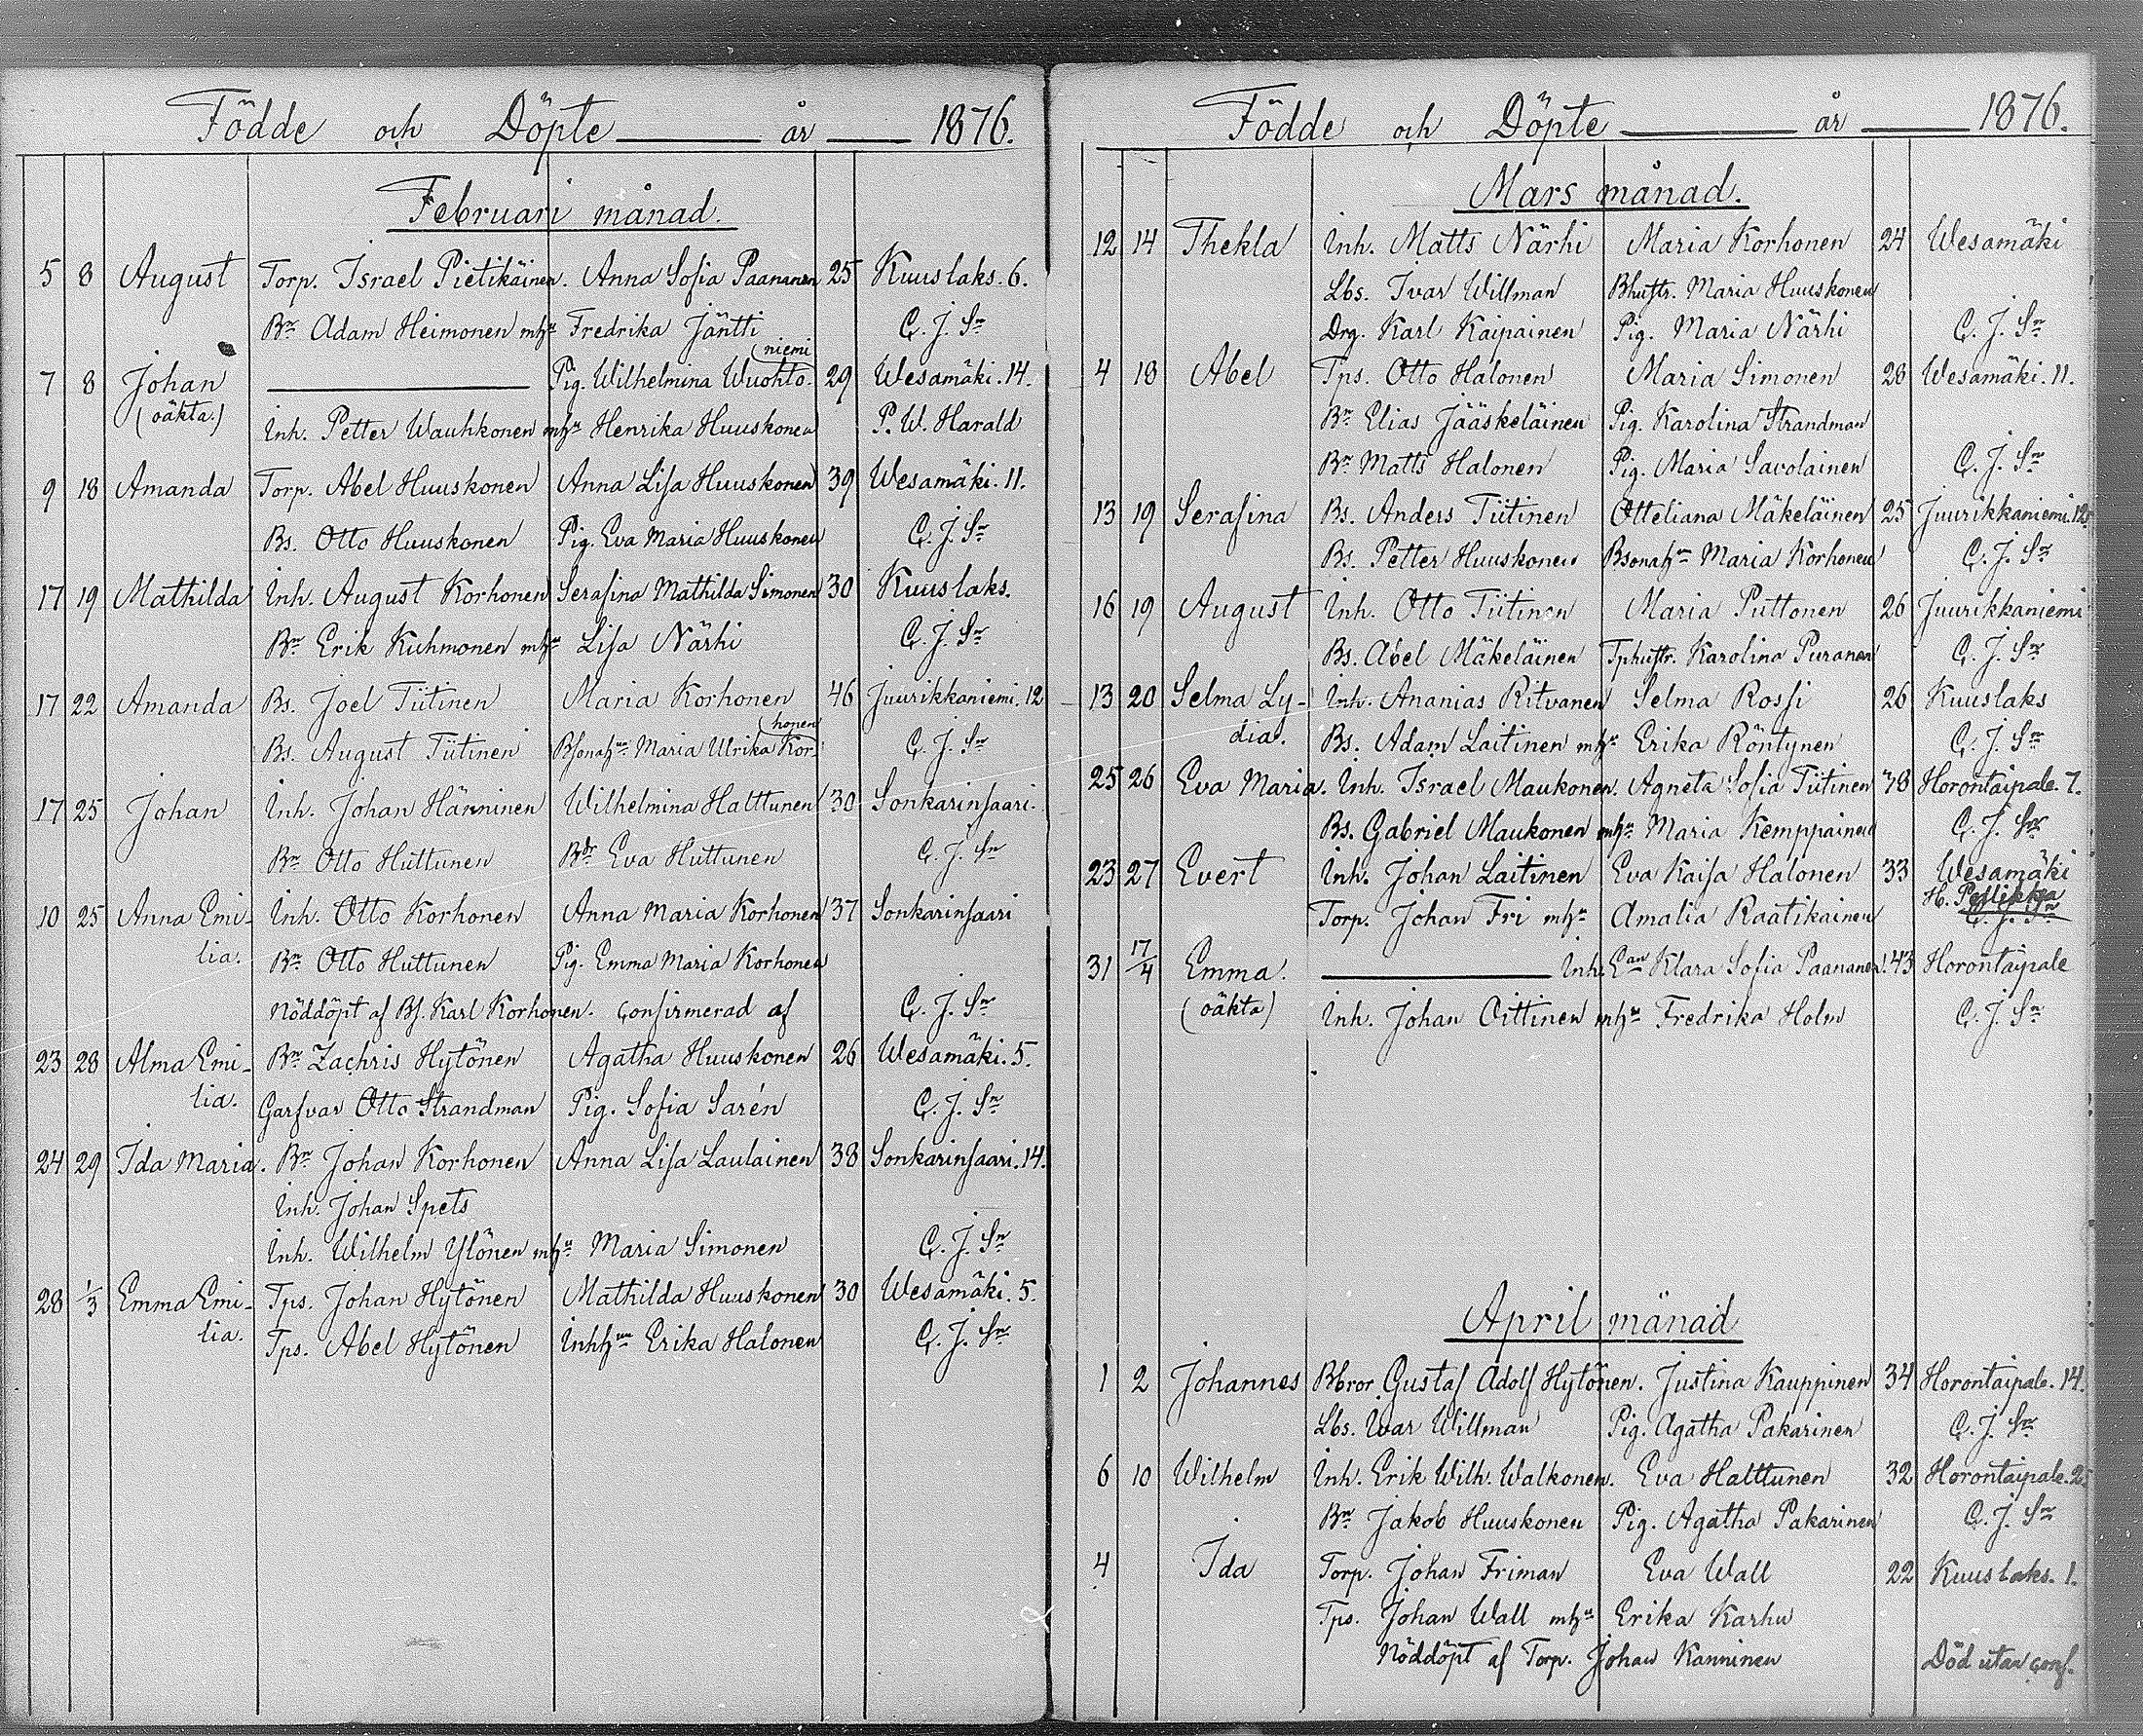 Födde och Döpte år 1876.
Februari månad.
5 8 August Torp. Israel Pietikäinen. Anna Sofia Paananen 25 Kuuslaks. 6.
Bn Adam Heimonen mhu Fredrika Jäntti C. J. Sn
(niemi
7 8 Johan Pig. Wilhelmina Wuohto- 29 Wesamäki. 14.
(oäkta.) Inh. Petter Wauhkonen mhu Henrika Huuskonen P. W. Harald
9 18 Amanda Torp. Abel Huuskonen Anna Lisa Huuskonen 39 Wesamäki. 11.
Bs. Otto Huuskonen Pig. Eva Maria Huuskonen C. J. Sn
17 19 Mathilda Inh. August Korhonen Serafina Mathilda Simonen 30 Kuuslaks.
Bn Erik Kuhmonen mhu Lisa Närhi C. J. Sn
17 22 Amanda Bs. Joel Tiitinen Maria Korhonen 46 Juurikkaniemi. 12
(honen
Bs. August Tiitinen Bsonahu Maria Ulrika Kor- C. J. Sn
17 25 Johan Inh. Johan Hänninen Wilhelmina Halttunen 30 Sonkarinsaari.
Bn Otto Huttunen Bdr Eva Huttunen C. J. Sn
10 25 Anna Emi- Inh. Otto Korhonen Anna Maria Korhonen 37 Sonkarinsaari
lia. Bn Otto Huttunen Pig. Emma Maria Korhonen
Nöddöpt af Bs. Karl Korhonen. Confirmerad af C. J. Sn
23 28 Alma Emi- Bn Zachris Hytönen Agatha Huuskonen 26 Wesamäki. 5.
lia. Garfvar Otto Strandman Pig. Sofia Sarén C. J. Sn
24 29 Ida Maria. Bn Johan Korhonen Anna Lisa Laulainen 38 Sonkarinsaari. 14.
Inh. Johan Spets
Inh. Wilhelm Ylönen mhu Maria Simonen C. J. Sn
28 1/3 Emma Emi- Tps. Johan Hytönen Mathilda Huuskonen 30 Wesamäki. 5.
lia. Tps. Abel Hytönen Inhhu Erika Halonen C. J. Sn
Födde och Döpte år 1876.
Mars månad.
12 14 Thekla Inh. Matts Närhi Maria Korhonen 24 Wesamäki
Lbs. Ivar Willman Bhustr. Maria Huuskonen
Drg. Karl Kaipainen Pig. Maria Närhi C. J. Sn
4 18 Abel Tps. Otto Halonen Maria Simonen 28 Wesamäki. 11.
Bn Elias Jääskeläinen Pig. Karolina Strandman
Bn Matts Halonen Pig. Maria Savolainen C. J. Sn
13 19 Serafina Bs. Anders Tiitinen Otteliana Mäkeläinen 25 Juurikkaniemi. 12.
Bs. Petter Huuskonen Bsonahu Maria Korhonen C. J. Sn
16 19 August Inh. Otto Tiitinen Maria Puttonen 26 Juurikkaniemi
Bs. Abel Mäkeläinen Tphustr. Karolina Puranen C. J. Sn
13 20 Selma Ly- Inh. Ananias Ritvanen Selma Rossi 26 Kuuslaks
dia. Bs. Adam Laitinen mhu Erika Röntynen C. J. Sn
25 26 Eva Maria. Inh. Israel Maukonen. Agneta Sofia Tiitinen 38 Horontaipale. 7.
Bs. Gabriel Maukonen mhu Maria Kemppainen C. J. Sn
23 27 Evert Inh. Johan Laitinen Eva Kaisa Halonen 33 Wesamäki
Torp. Johan Fri mhu Amalia Raatikainen H. Pellikka
C. J. Sn
31 17/4 Emma. Inh. Ean Klara Sofia Paananen. 43 Horontaipale
(oäkta) Inh. Johan Oittinen mhu Fredrika Holm C. J. Sn
April månad
1 2 Johannes Bbror Gustaf Adolf Hytönen. Justina Kauppinen 34 Horontaipale. 14.
Lbs. Ivar Willman Pig. Agatha Pakarinen C. J. Sn
6 10 Wilhelm Inh. Erik Wilh. Walkonen. Eva Halttunen 32 Horontaipale. 2
Bn Jakob Huuskonen Pig. Agatha Pakarinen C. J. Sn
4 Ida Torp. Johan Friman Eva Wall 22 Kuuslaks. 1.
Tps. Johan Wall mhu Erika Karhu
Nöddöpt af Torp. Johan Kanninen Död utan conf.